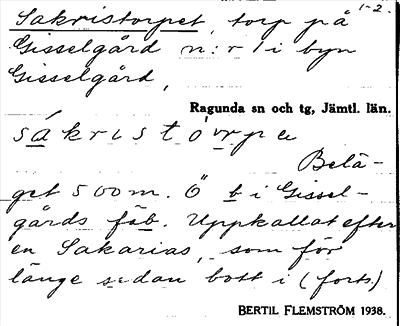 Sakristorpet, torp på 1-2.
Gisselgård n:r 1 i byn
Gisselgård,
Ragunda sn och tg, Jämtl. län.
sákristòrpe
Belä-
get 500 m. Ö b i Gissel-
gårds fäb. Uppkallat efter
en Sakarias, som för
länge sedan bott i (forts.)
BERTIL FLEMSTRÖM 1938.